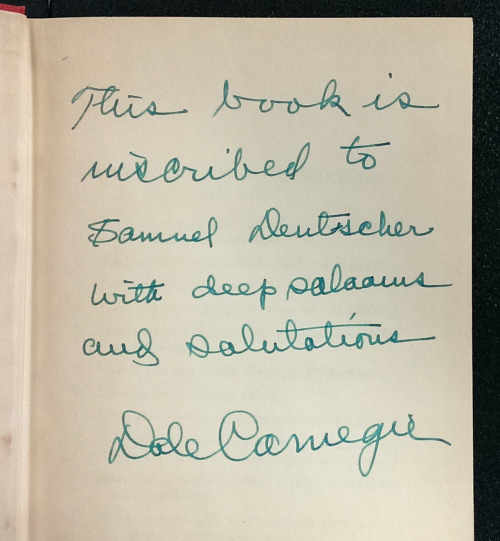 This book is
inscribed to
Samuel Deutscher
with deep salaams
and salutations
Dale Carnegie